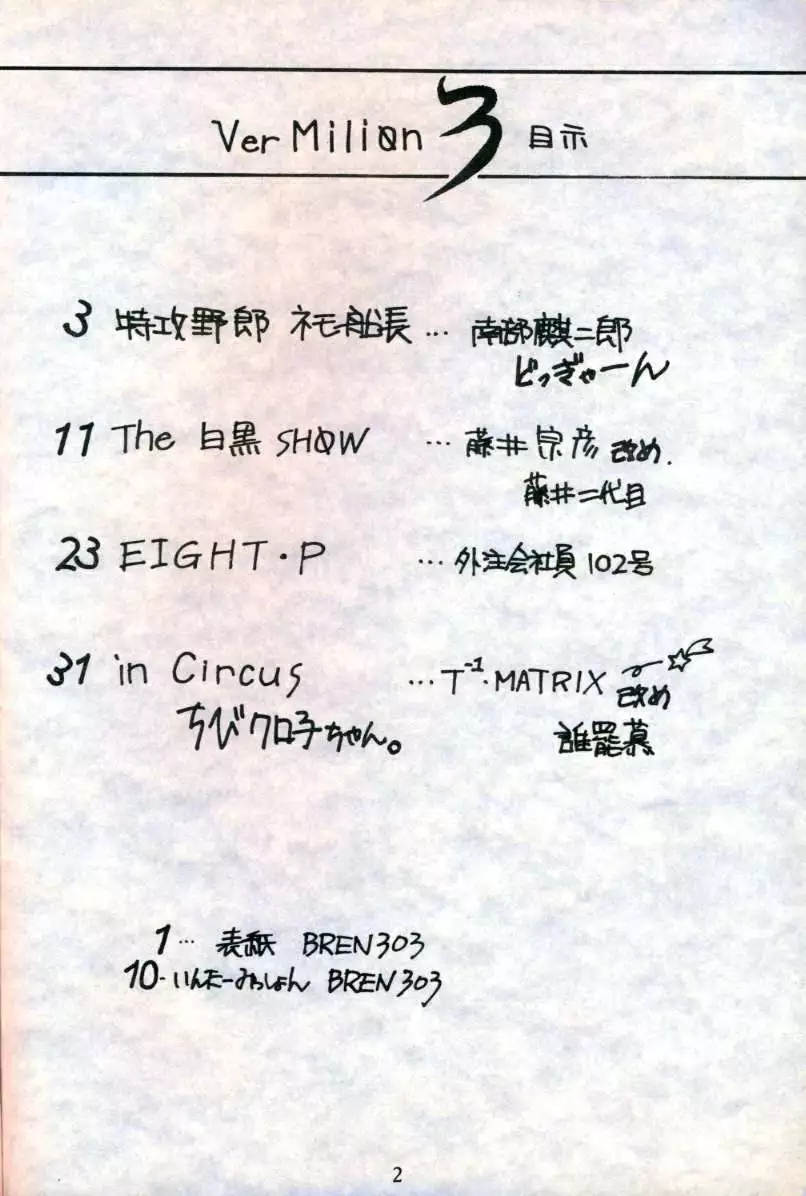 Ver Milion 3 目示
3 特攻野郎 ネモ船長 … 南部麒二郎
どっぎゃーん
11 The 白黒 SHOW … 藤井宗彦 改め.
藤井二代目
23 EIGHT・P … 外注会社員102号
31 in Circus … T⁻¹・MATRIX 改め
ちびクロ子ちゃん。 誰罷慕
1… 表紙 BREN303
10-いんたーみっしょん BREN303
2